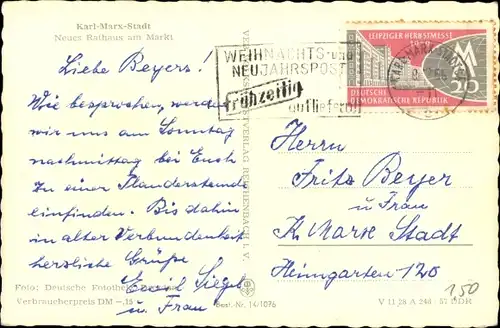 Karl-Marx-Stadt
Neues Rathaus am Markt
LEIPZIGER HERBSTMESSE
WEIHNACHTS- und
NEUJAHRSPOST
frühzeitig
aufliefern
DEUTSCHE
DEMOKRATISCHE REPUBLIK
20
Liebe Beyers!
Wie besprochen, werden
wir uns am Sonntag
nachmittag bei Euch
zu einer Plauderstunde
einfinden. Bis dahin
in alter Verbundenheit
herzliche Grüße
Emil Siegel
u. Frau
REICHENBACH I. V.
Herrn
Fritz Beyer
u Frau
K. Marx Stadt
Heimgarten 120
150
Foto: Deutsche Fotothek
Verbraucherpreis DM -.15
Best.-Nr. 14/1076
V 11 28 A 246 / 57 DDR